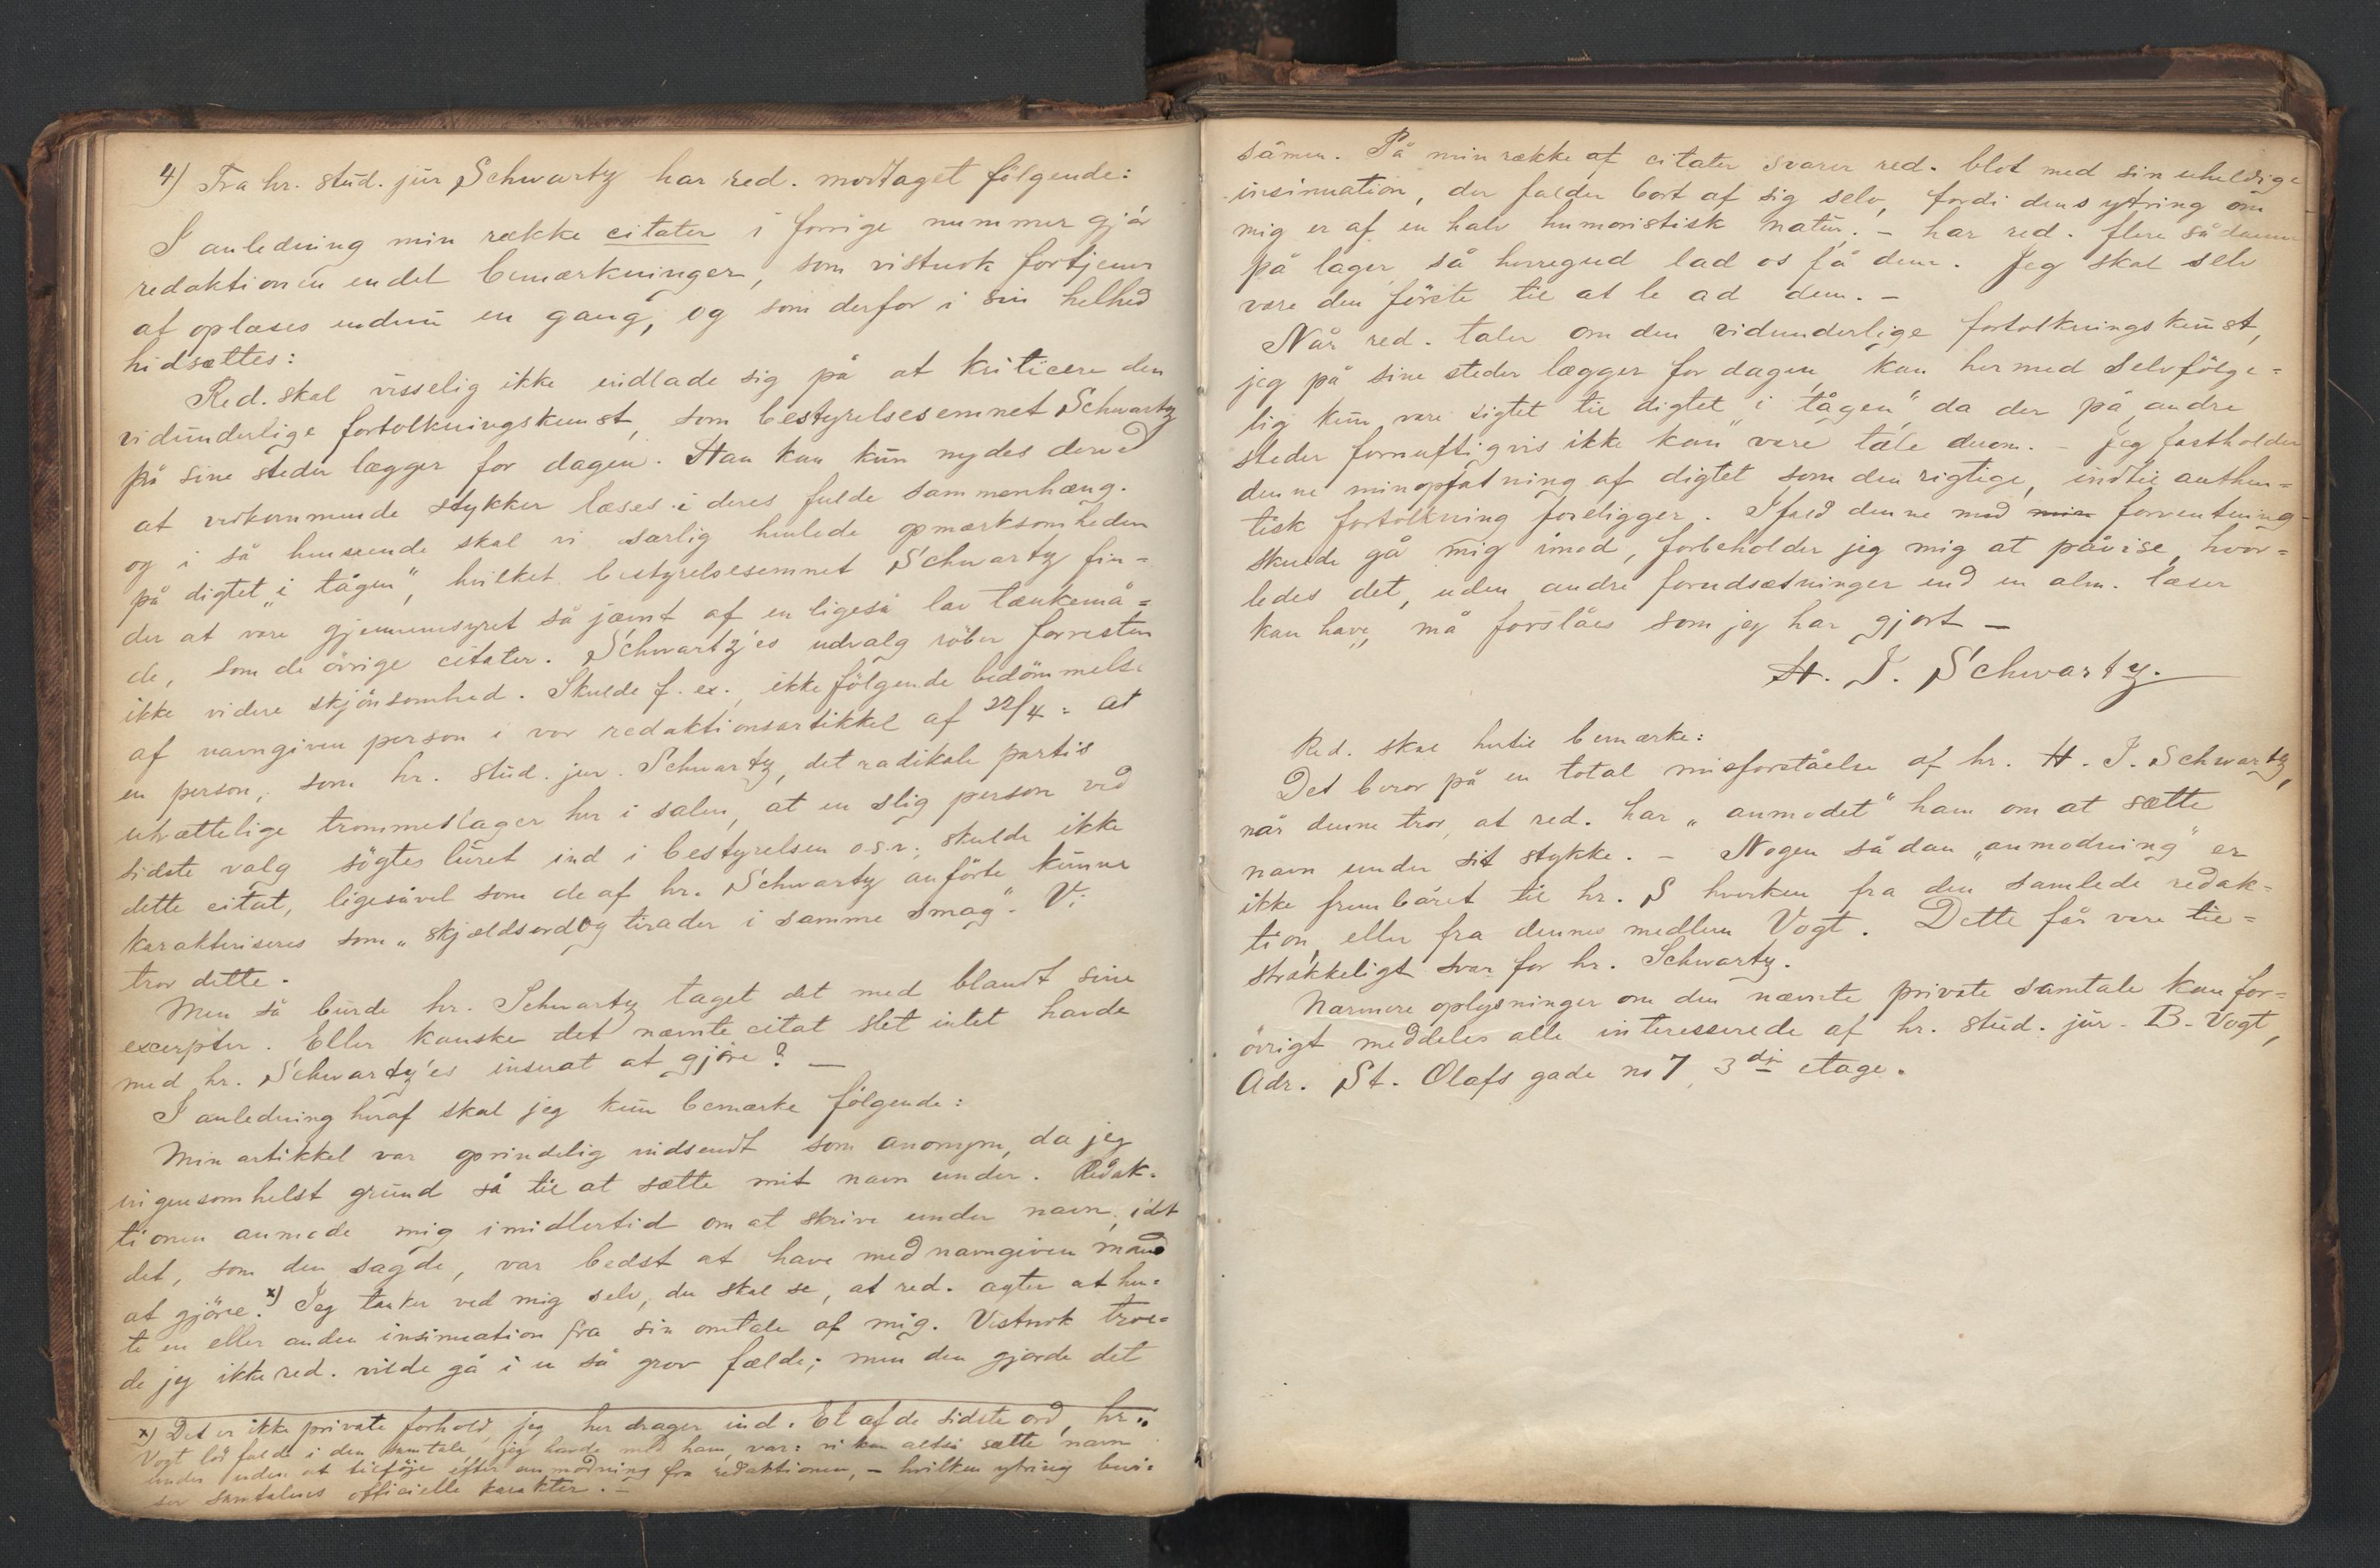 4) Fra hr. stud. jur Schwartz har red. modtaget følgende:
I anledning min række citater i forrige nummer gjør
redaktionen endel bemærkninger, som vistnok fortjener
at oplæses endnu en gang, og som derfor i sin helhed
hidsættes:
Red. skal visselig ikke indlade sig på at kriticere den
vidunderlige fortolkningskunst, som bestyrelsesemnet Schwartz
på sine steder lægger for dagen. Han kan kun nydes derved
at vedkommende stykker læses i deres fulde sammenhæng.
og i så henseende skal vi særlig henlede opmærksomheden
på digtet „i tågen", hvilket bestyrelsesemnet Schwartz fin=
der at være gjennemsyret så jævnt af en ligeså lav tænkemå=
de, som de øvrige citater. Schwartz'es udvalg røber forresten
ikke videre skjønsomhed. Skulde f. ex., ikke følgende bedømmelse
af navngiven person i vor redaktionsartikkel af 22/4: at
en person, som hr. stud. jur. Schwartz, det radikale partis
utrættelige trommeslager her i salen, at en slig person ved
sidste valg søgtes luret ind i bestyrelsen o.s.v.; skulde ikke
dette citat, ligesåvel som de af hr. Schwartz anførte kunne
karakteriseres som „skjældsord og tirader i samme smag". Vi
tror dette.
Men så burde hr. Schwartz taget det med blandt sine
excerpter. Eller kanske det nævnte citat slet intet havde
med hr. Schwartz'es inserat at gjøre? —
I anledning heraf skal jeg kun bemærke følgende:
Min artikkel var oprindelig indsendt som anonym, da jeg
ingensomhelst grund så til at sætte mit navn under. Redak=
tionen anmode mig imidlertid om at skrive under navn, idet
det, som den sagde, var bedst at have med navngiven mand
at gjøre. x) Jeg tænker ved mig selv, du skal se, at red. agter at hen=
te en eller anden insinuation fra sin omtale af mig. Vistnok troe=
de jeg ikke red. vilde gå i en så grov fælde; men den gjorde det
x) Det er ikke private forhold, jeg her drager ind. Et af de sidste ord, hr.
Vogt lod falde i den samtale, jeg havde med ham, var: vi kan altså sætte navn
under uden at tilføje efter anmodning fra redaktionen, – hvilken ytring bevi=
ser samtalens officielle karakter. –
såmen. På min række af citater svarer red. blot med sin uheldige
insinuation, der falder bort af sig selv, fordi dens ytring om
mig er af en halv humoristisk natur. – har red. flere sådanne
på lager, så herregud lad os få dem. Jeg skal selv
være den første til at le ad dem. –
Når red. taler om den vidunderlige fortolkningskunst,
jeg på sine steder lægger for dagen, kan hermed selvfølge=
lig kun være sigtet til digtet „i tågen", da der på andre
steder fornuftigvis ikke kan være tale derom. – Jeg fastholder
denne min opfatning af digtet som den rigtige, indtil authen=
tisk fortolkning foreligger. Ifald denne mod min forventning
skulde gå mig imod, forbeholder jeg mig at påvise, hvor=
ledes det, uden andre forudsætninger end en alm. læser
kan have, må forståes som jeg har gjort —
H. J. Schwartz.
Red. skal hertil bemærke:
Det beror på en total misforståelse af hr. H. J. Schwartz,
når denne tror, at red. har „anmodet" ham om at sætte
navn under sit stykke. – Nogen sådan „anmodning" er
ikke frembåret til hr. S hverken fra den samlede redak=
tion, eller fra dennes medlem Vogt. Dette får være til=
strækkeligt svar for hr. Schwartz.
Nærmere oplysninger om den nævnte private samtale kan for=
øvrigt meddeles alle interesserede af hr. stud. jur. B. Vogt,
Adr. St. Olafs gade no 7, 3die etage.